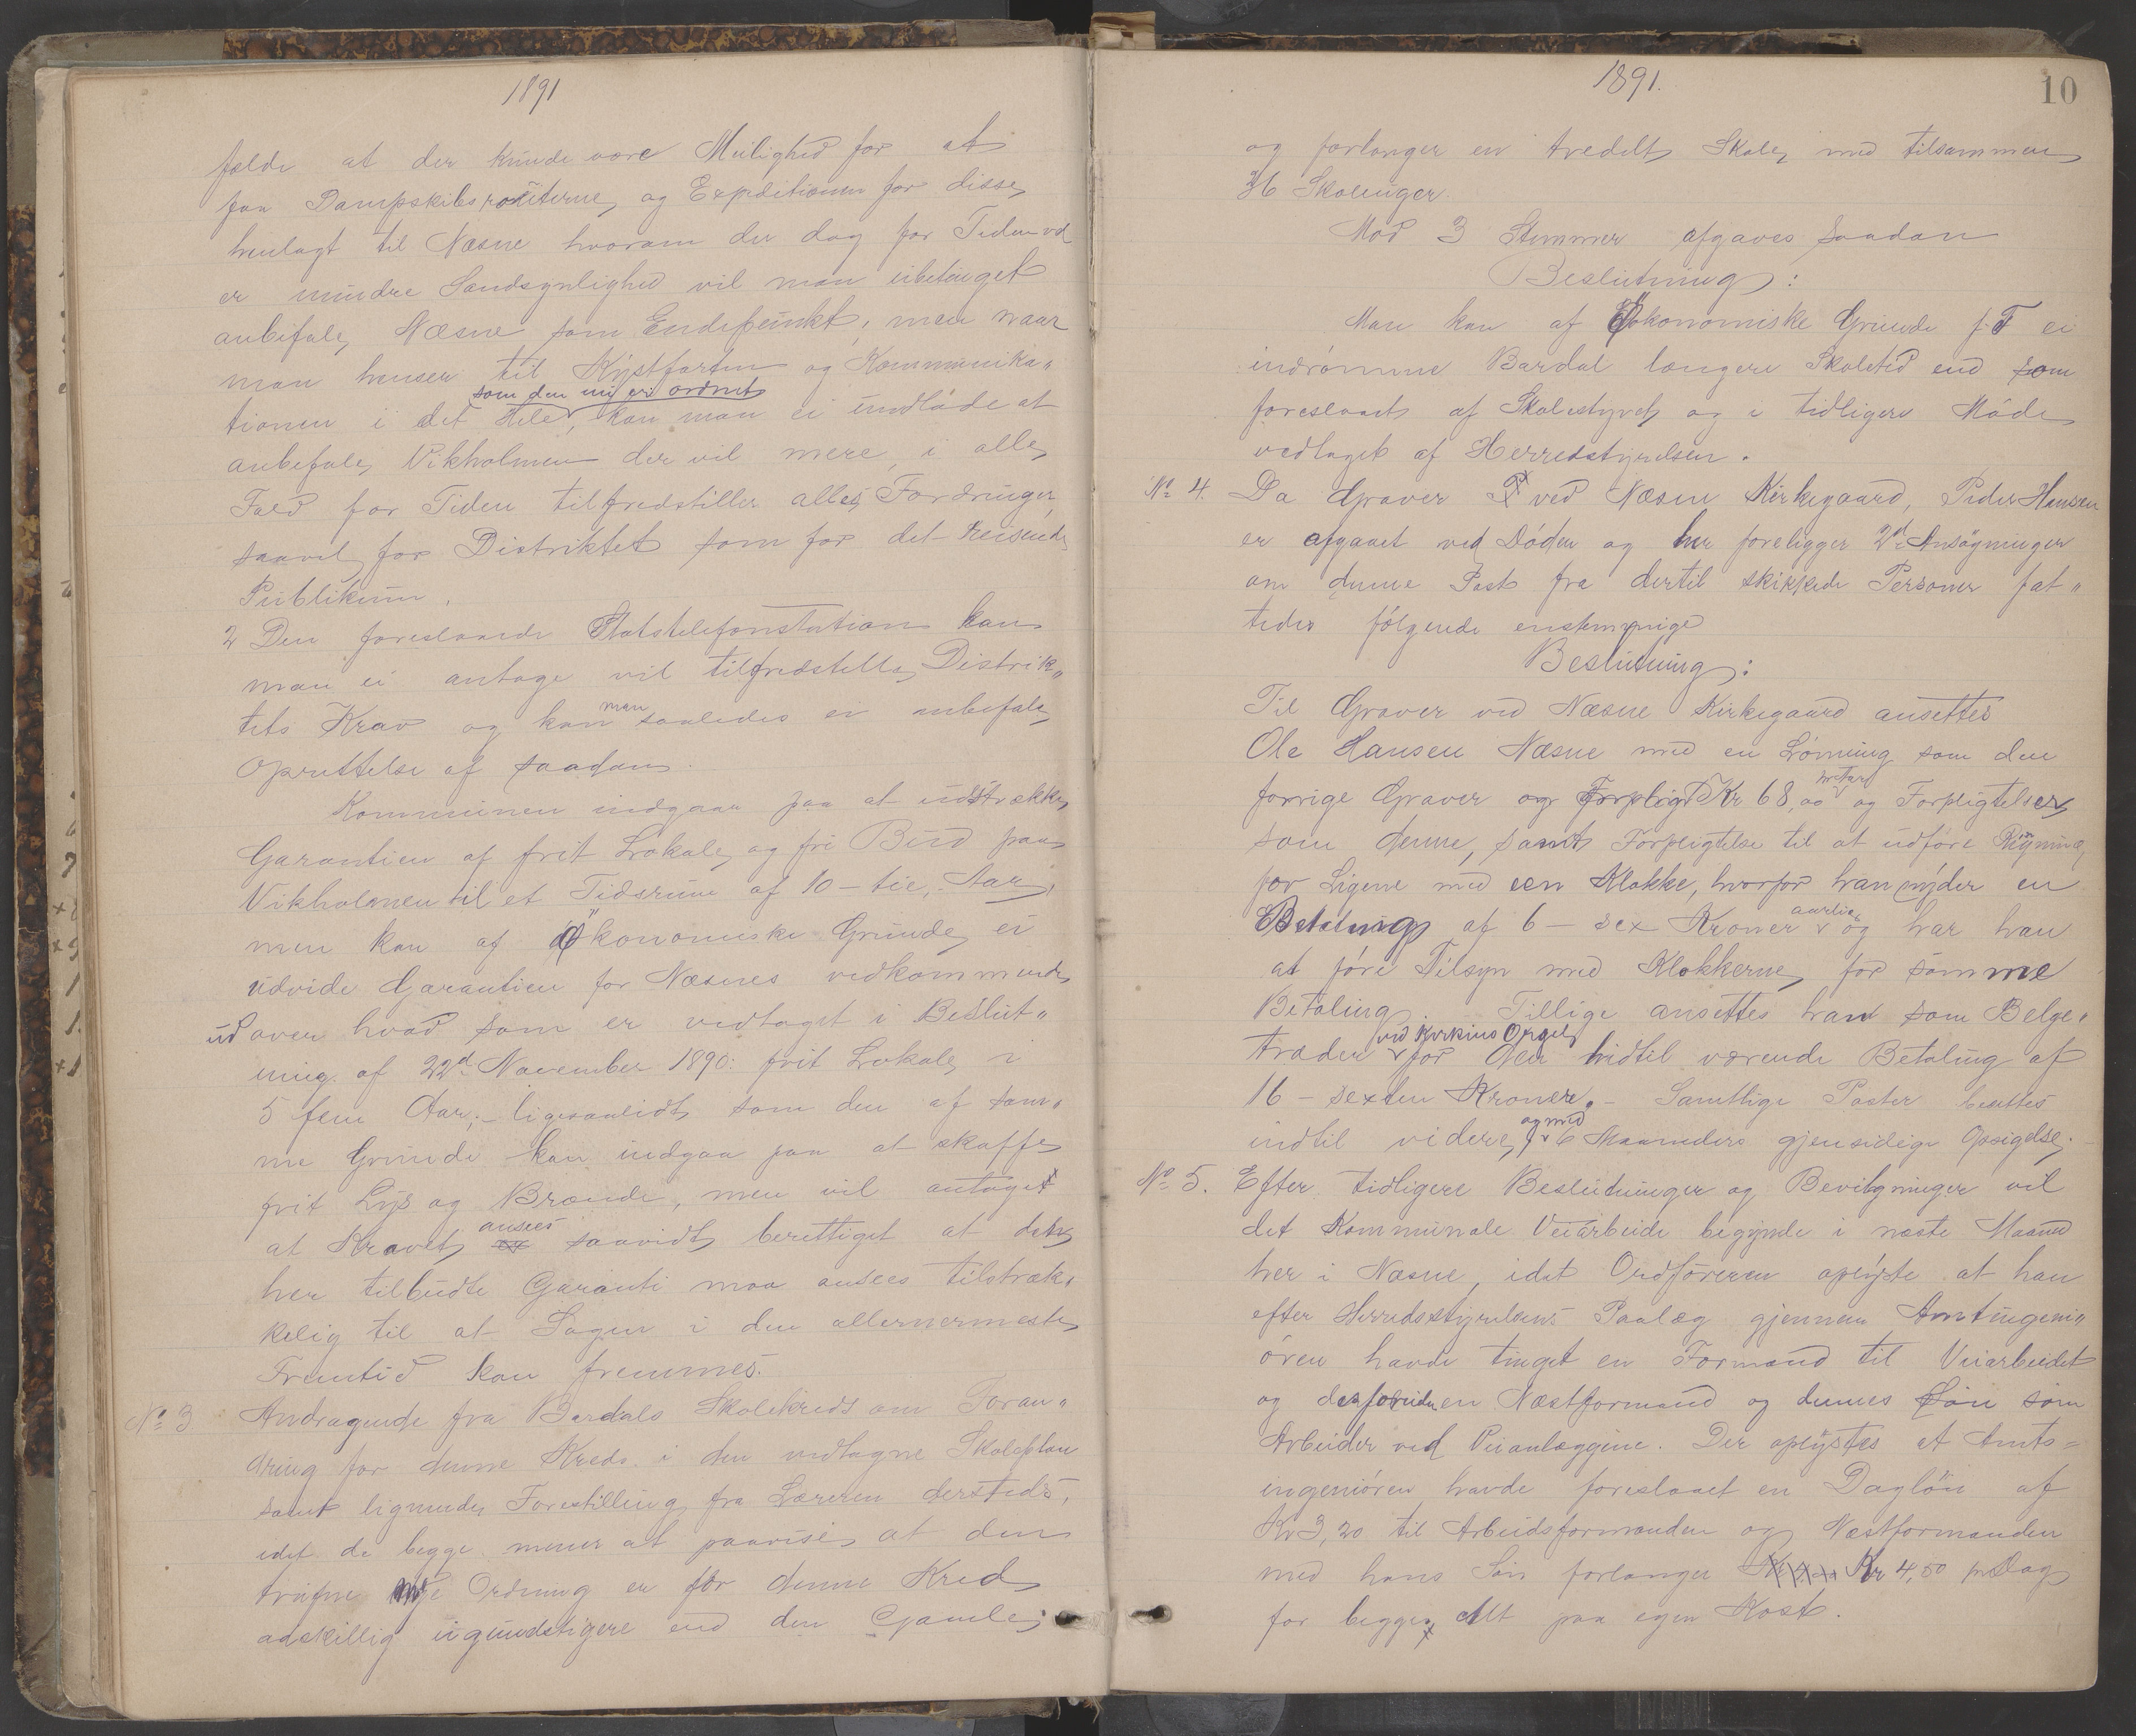 1891
falde at der kunde være Mulighed for at
faa Dampskibsrouterne og Expeditionen for disse
henlagt til Næsne hvorom der dog for Tiden vel
er mindre Sandsynlighed vil man ubetinget
anbefale Næsne som Endepunkt, men naar
man henser til Kystfarten og Kommunika„
som den nu er ordnet
tionen i det Hele, kan man ei undlade at
anbefale Vikholmen der vil mere, i alle
Fald for Tiden tilfredstiller alles Fordringer
saavel for Distriktet som for det Reisende
Publikum.
2 Den foreslaaede Statstelefonstation kan
man ei antage vil tilfredstille Distrik„
tets Krav og kan man saaledes ei anbefale
Oprettelse af saadan.
Kommunen indgaar paa at udstrække
Garantien af frit Lokale og fri Bud paa
Vikholmen til et Tidsrum af 10 - tie, Aar,
men kan af Økonomiske Grunde ei
udvide Garantien for Næsnes vedkommende
ud over hvad som er vedtaget i Beslut„
ning af 22d November 1890: frit Lokale i
5 fem Aar; - ligesaalidt som den af sam„
me Grunde kan indgaa paa at skaffe
frit Lys og Brænde, men vil antaget
at Kravet ansees saavidt berettiget at den
her tilbudte Garanti maa ansees tilstræk„
kelig til at Sagen i den allernermeste
Fremtid kan fremmes.
No 3 Andragende fra Bardals Skolekreds om Foran„
dring for denne Kreds i den vedtagne Skoleplan
samt lignende Forestilling fra Læreren dersteds,
idet de begge mener at paavise at den
trufne nye Ordning er for denne Kreds
adskillig ugundstigere end den Gamle;
1891. 10
og forlanger en tredelt Skole med tilsammen
36 Skoleuger.
Mod 3 Stemmer afgaves saadan
Beslutning:
Man kan af Økonomiske Grunde f. T ei
indrømme Bardal længere Skoletid end som
foreslaaet af Skolestyret og i tidligere Møde
vedtaget af Herredstyrelsen.
No 4. Da Graver P ved Næsne Kirkegaard, Peder Hansen
er afgaaet ved Døden og her foreligger 2de Ansøgninger
om denne Post fra dertil skikkede Personer fat„
tedes følgende enstemmige
Beslutning:
Til Graver ved Næsne Kirkegaard ansettes
Ole Hansen Næsne med en Lønning som den
forrige Graver og Forpligt Kr 68,00 og Forpligtelser
som denne, samt Forpligtelse til at udføre Rigning
for Ligene med een Klokke, hvorfor han nyder en
Betaling af 6 - sex Kroner aarlig og har han
at føre Tilsyn med Klokkerne for samme
Betaling. Tillige ansettes han som Belge„
træder ved Kirkens Orgel for den hidtil værende Betaling af
16 - sexten Kroner. - Samtlige Poster besettes
indtil videre, og med 6 Maaneders gjensidige Opsigelse. -
No 5. Efter tidligere Beslutninger og Bevilgninger vil
det Kommunale Veiarbeide begynde i næste Maaned
her i Næsne, idet Ordføreren oplyste at han
efter Herredsstyrelsens Paalæg gjennem Amtingeni„
øren havde tinget en Formand til Veiarbeidet
og desforuden en Næstformand og dennes Søn som
Arbeider ved Veianlæggene. Der oplystes at Amts=
ingeniøren havde foreslaaet en Dagløn af
Kr 3,20 til Arbeidsformanden og Næstformanden
med hans Søn forlanger Kr 4,50 pr Dag
for begge, Alt paa egen Kost.